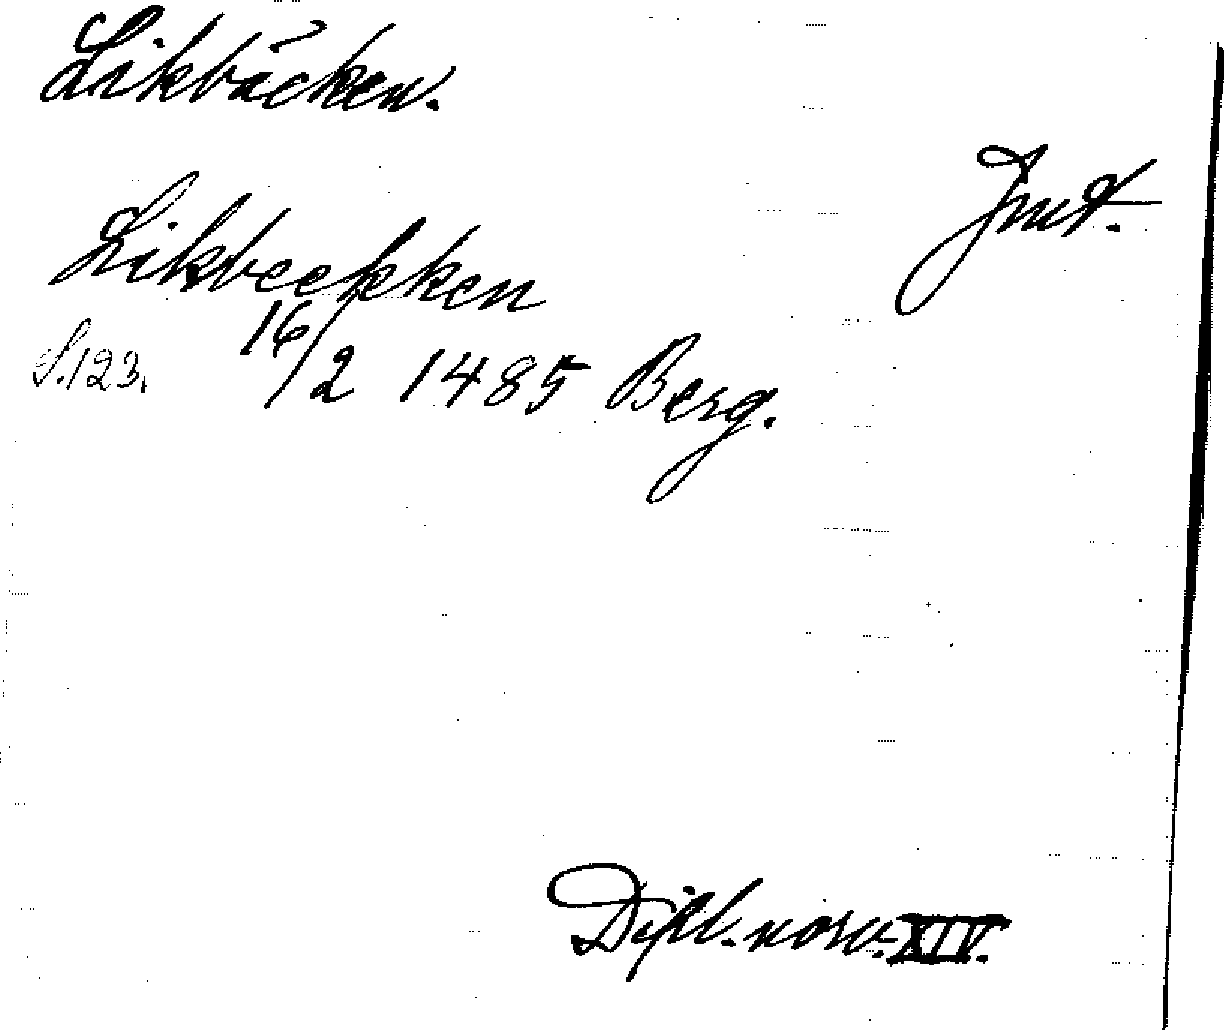 Likbäcken.
Jmt.
Likbeekken
S.123. 16/2 1485 Berg.
Dipl. norv. XIV.